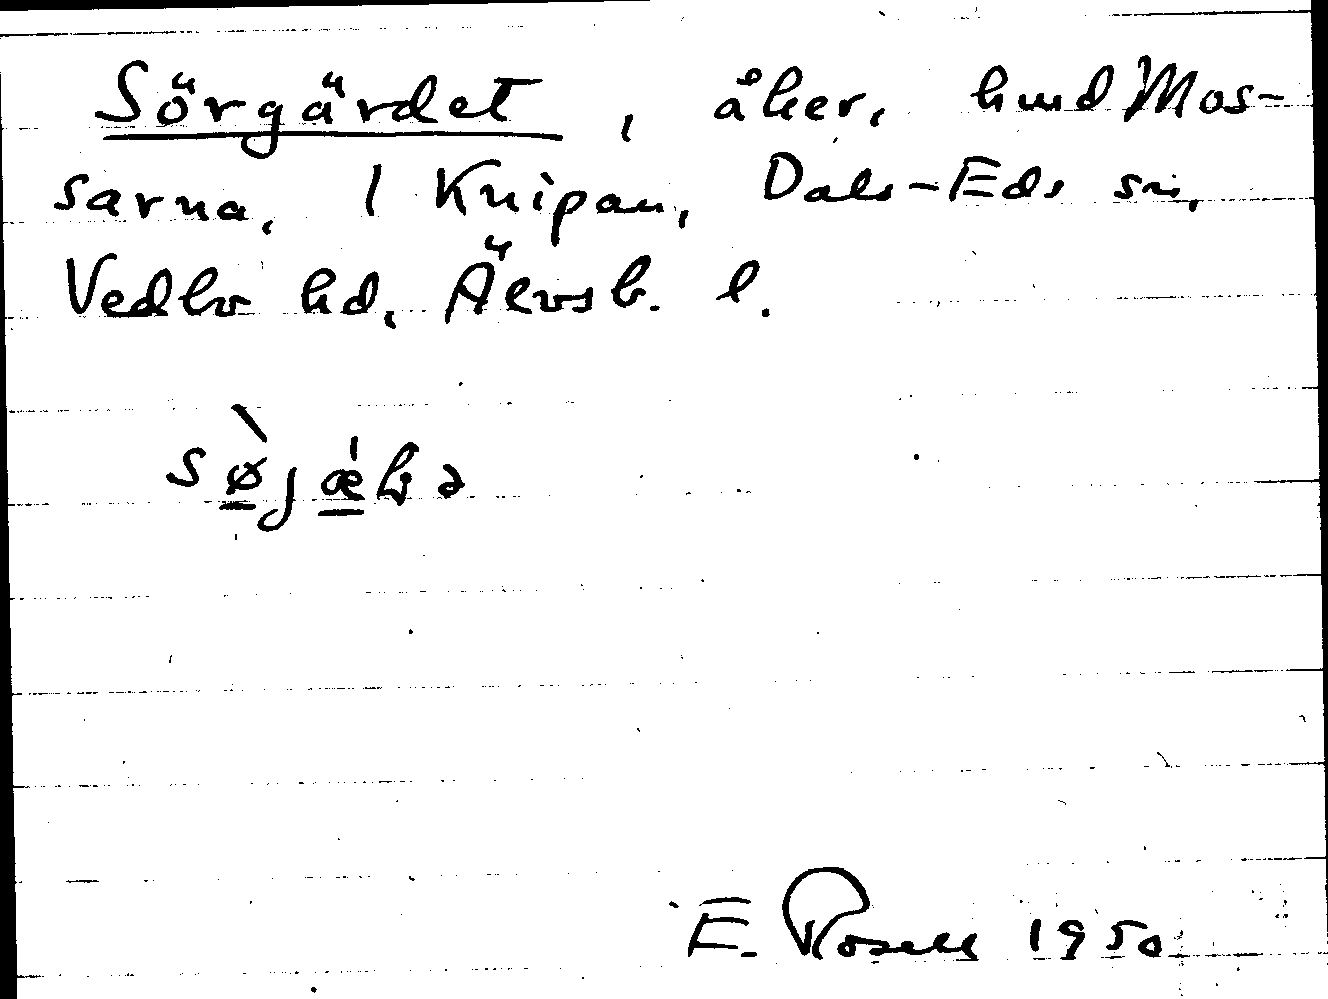 Sörgärdet, åker, hmd Mos-
sarna, 1 Knipan, Dals-Eds sn,
Vedbo hd, Älvsb. l.
E. Rosell 1950